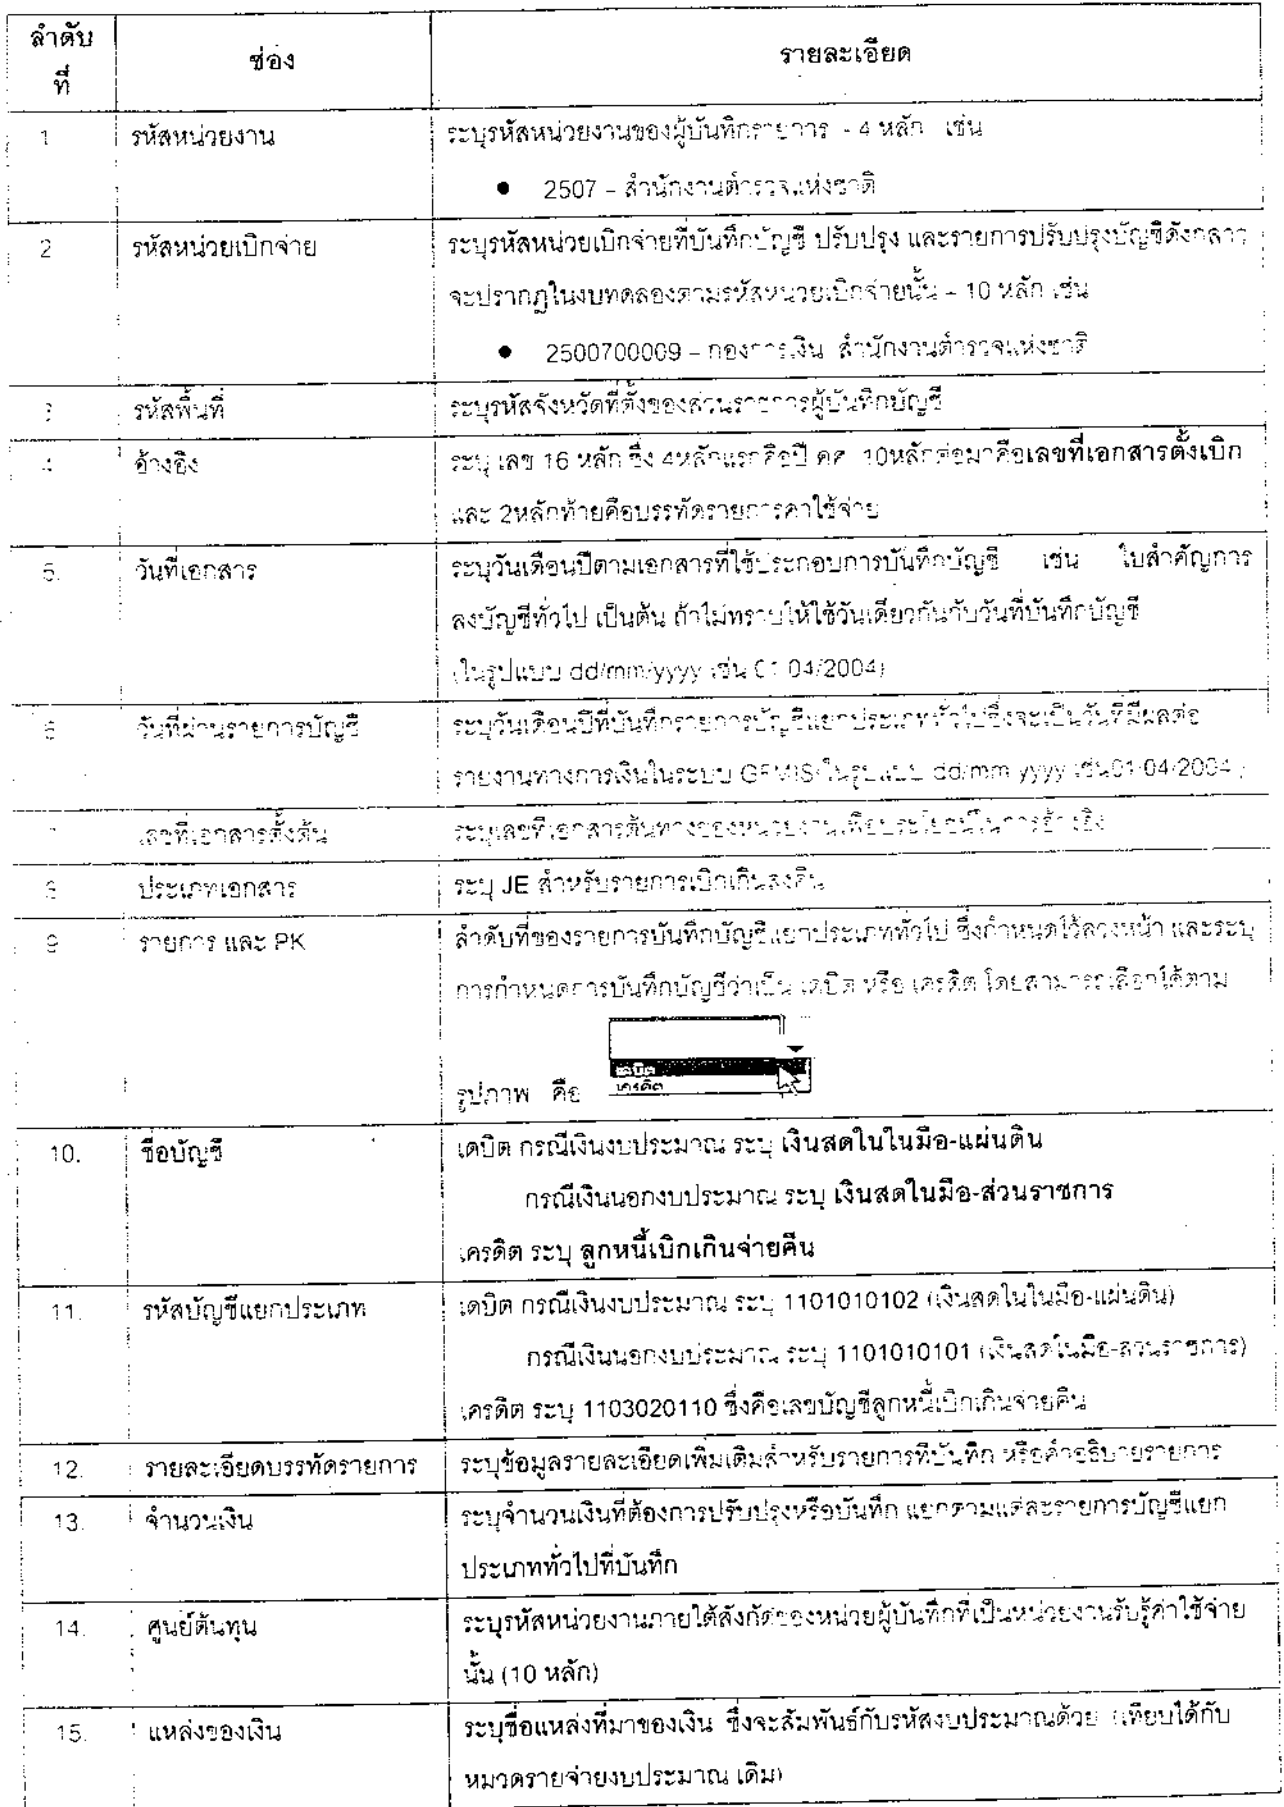 ลำดับ
ที่
ช่อง
รายละเอียด
1
รหัสหน่วยงาน
ระบุรหัสหน่วยงานของผู้บันทึกรายการ - 4 หลัก เช่น
● 2507 – สำนักงานตำรวจแห่งชาติ
2
รหัสหน่วยเบิกจ่าย
ระบุรหัสหน่วยเบิกจ่ายที่บันทึกบัญชี ปรับปรุง และรายการปรับปรุงบัญชีดังกล่าว
จะปรากฏในงบทดลองตามรหัสหน่วยเบิกจ่ายนั้น – 10 หลัก เช่น
● 2500700009 – กองการเงิน สำนักงานตำรวจแห่งชาติ
3
รหัสพื้นที่
ระบุรหัสจังหวัดที่ตั้งของส่วนราชการผู้บันทึกบัญชี
4
อ้างอิง
ระบุ เลข 16 หลัก ซึ่ง 4หลักแรกคือปี คศ 10หลักต่อมาคือเลขที่เอกสารตั้งเบิก
และ 2หลักท้ายคือบรรทัดรายการค่าใช้จ่าย
5.
วันที่เอกสาร
ระบุวันเดือนปีตามเอกสารที่ใช้ประกอบการบันทึกบัญชี เช่น ใบสำคัญการ
ลงบัญชีทั่วไป เป็นต้น ถ้าไม่ทราบให้ใช้วันเดียวกันกับวันที่บันทึกบัญชี
(ในรูปแบบ dd/mm/yyyy เช่น 01/04/2004)
6
วันที่ผ่านรายการบัญชี
ระบุวันเดือนปีที่บันทึกรายการบัญชีแยกประเภททั่วไปซึ่งจะเป็นวันที่มีผลต่อ
รายงานทางการเงินในระบบ GFMIS(ในรูปแบบ dd/mm/yyyy เช่น01/04/2004)
7
เลขที่เอกสารตั้งต้น
ระบุเลขที่เอกสารต้นทางของหน่วยงานเพื่อประโยชน์ในการอ้างอิง
8
ประเภทเอกสาร
ระบุ JE สำหรับรายการเบิกเกินส่งคืน
9
รายการ และ PK
ลำดับที่ของรายการบันทึกบัญชีแยกประเภททั่วไป ซึ่งกำหนดไว้ล่วงหน้า และระบุ
การกำหนดการบันทึกบัญชีว่าเป็น เดบิต หรือ เครดิต โดยสามารถเลือกได้ตาม
เดบิต
เครดิต
รูปภาพ คือ
10.
ชื่อบัญชี
เดบิต กรณีเงินงบประมาณ ระบุ เงินสดในในมือ-แผ่นดิน
กรณีเงินนอกงบประมาณ ระบุ เงินสดในมือ-ส่วนราชการ
เครดิต ระบุ ลูกหนี้เบิกเกินจ่ายคืน
11.
รหัสบัญชีแยกประเภท
เดบิต กรณีเงินงบประมาณ ระบุ 1101010102 (เงินสดในในมือ-แผ่นดิน)
กรณีเงินนอกงบประมาณ ระบุ 1101010101 (เงินสดในมือ-ส่วนราชการ)
เครดิต ระบุ 1103020110 ซึ่งคือเลขบัญชีลูกหนี้เบิกเกินจ่ายคืน
12.
รายละเอียดบรรทัดรายการ
ระบุข้อมูลรายละเอียดเพิ่มเติมสำหรับรายการที่บันทึก หรือคำอธิบายรายการ
13.
จำนวนเงิน
ระบุจำนวนเงินที่ต้องการปรับปรุงหรือบันทึก แยกตามแต่ละรายการบัญชีแยก
ประเภททั่วไปที่บันทึก
14.
ศูนย์ต้นทุน
ระบุรหัสหน่วยงานภายใต้สังกัดของหน่วยผู้บันทึกที่เป็นหน่วยงานรับรู้ค่าใช้จ่าย
นั้น (10 หลัก)
15.
แหล่งของเงิน
ระบุชื่อแหล่งที่มาของเงิน ซึ่งจะสัมพันธ์กับรหัสงบประมาณด้วย (เทียบได้กับ
หมวดรายจ่ายงบประมาณ เดิม)